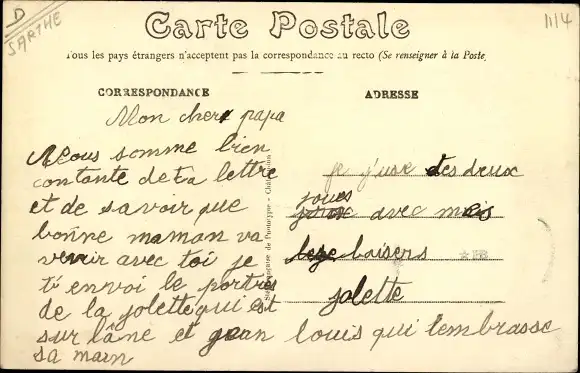 D
SARTHE
1114
Carte Postale
Tous les pays étrangers n'acceptent pas la correspondance au recto (Se renseigner à la Poste)
CORRESPONDANCE
Mon cher papa
Nous somme bien
contante de ta lettre
et de savoir que
bonne maman va
venir avec toi je
t'i envoi le portres
de la jolette qui est
sur l'âne et jean louis qui t'embrasse
sa main
ADRESSE
je j'use des deux
joues
avec mes
baisers
jolette